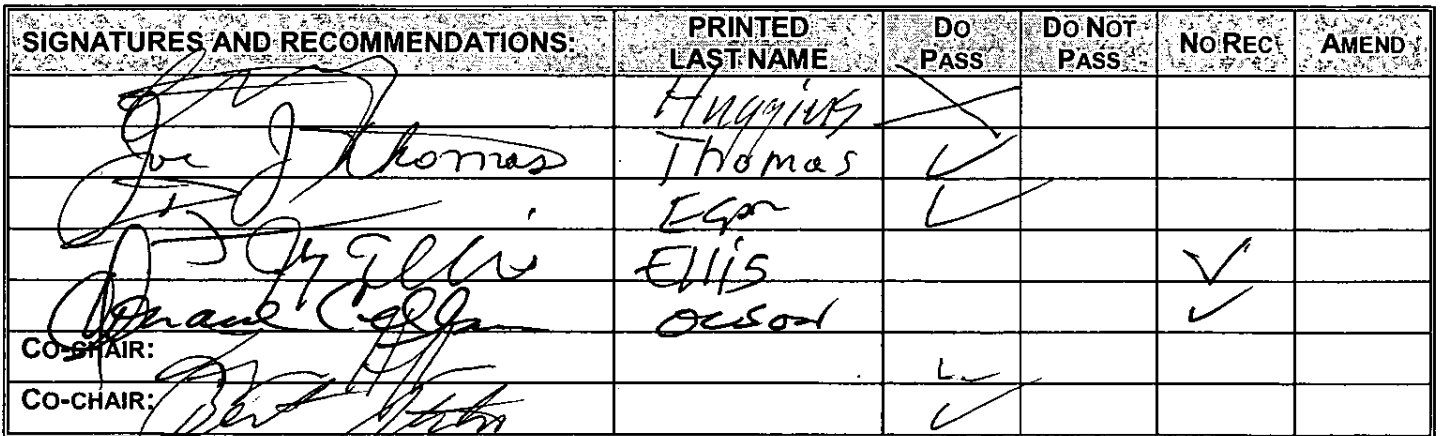 SIGNATURES AND RECOMMENDATIONS: PRINTED LAST NAME DO PASS DO NOT PASS NO REC AMEND
Huggins
Joe J Thomas Thomas ✓
✓
Ellis Ellis ✓
Olson ✓
CO-CHAIR: ✓
CO-CHAIR: Bert ✓